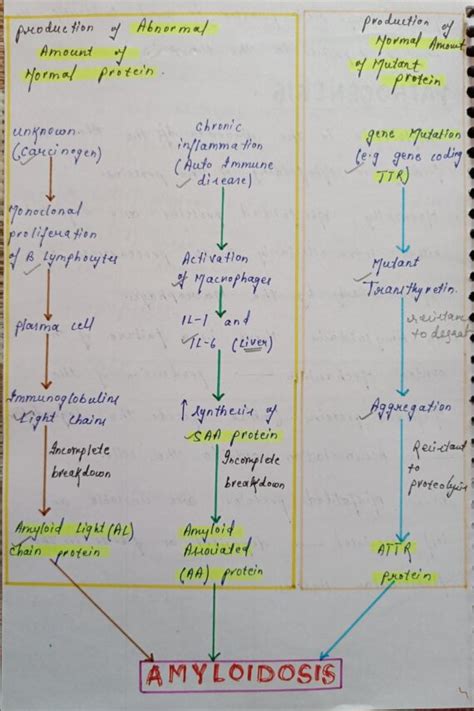 production of Abnormal
Amount of
Normal protein.
unknown
(Carcinogen)
Monoclonal
proliferation
of B Lymphocytes
plasma cell
Immunoglobulins
Light Chains
Incomplete
breakdown
Amyloid Light (AL)
Chain protein
Chronic
inflammation
(Auto Immune
disease)
Activation
of Macrophages
IL-1 and
IL-6 (Liver)
↑ Synthesis of
SAA protein
Incomplete
breakdown
Amyloid
Associated
(AA) protein
production of
Normal Amount
of Mutant
protein
gene Mutation
(e.g gene coding
TTR)
Mutant
Transthyretin.
resistance
to degrad
Aggregation
Resistant
to
proteolysis
ATTR
protein
AMYLOIDOSIS
4